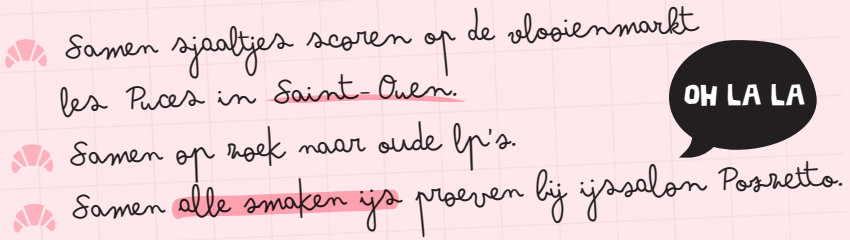 Samen sjaaltjes scoren op de vlooienmarkt
les Puces in Saint-Ouen.
OH LA LA
Samen op zoek naar oude lp's.
Samen alle smaken ijs proeven bij ijssalon Pozzetto.